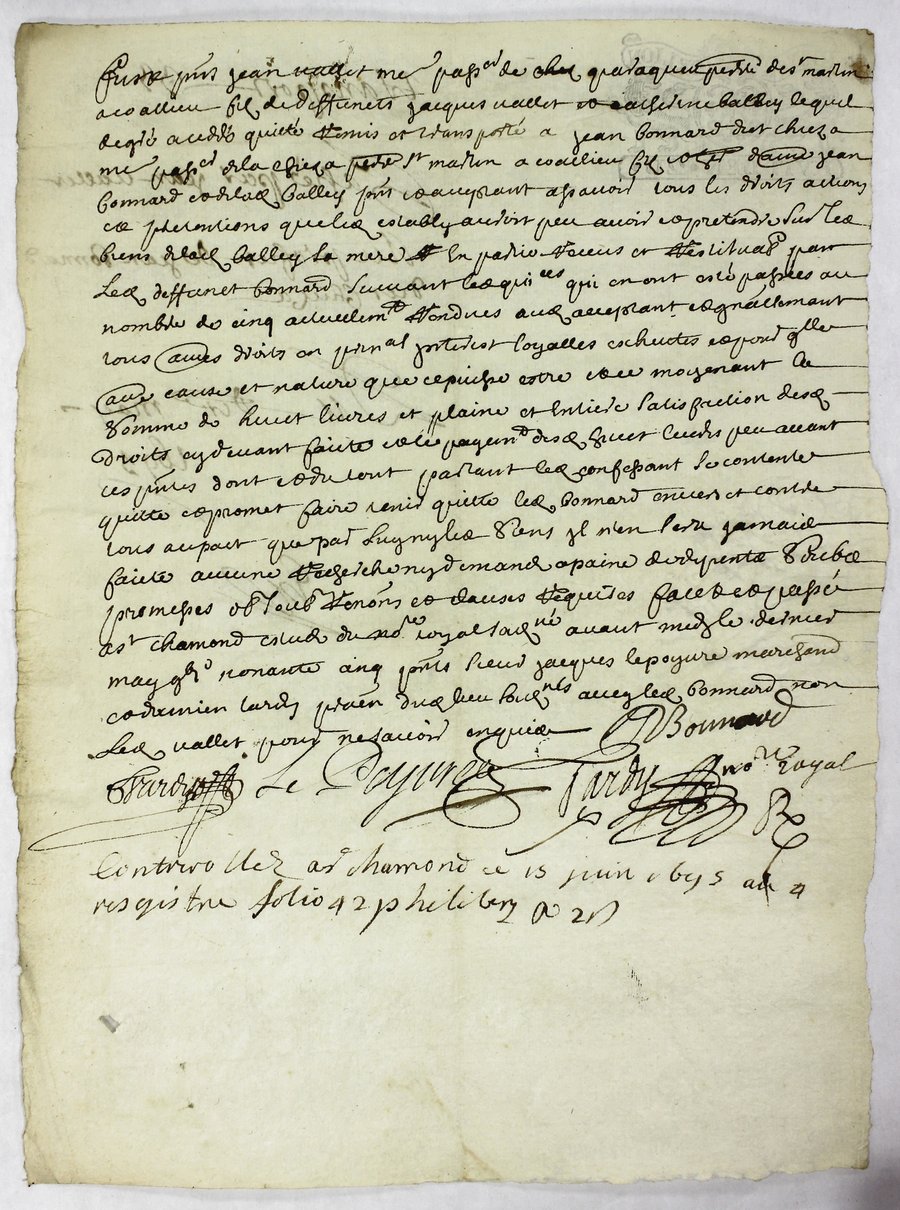 fust pñt jean vallet me pass.er de chez quaraqueu perre de st martin
acoallieu filz de deffuncts jacques vallet et catherine balley lequel
de gré a ceddé quitté remis et transporté a jean bonnard dict chieza
me pass.er de la chieza perre st martin a coailieu filz dautre jean
bonnard et de lad balley pñt et acceptant assavoir tous les droits actions
et pretentions que led estably auroit peu avoir et pretendre sur les
biens de lad balley sa mere en partie receus et restitués par
led deffunct bonnard suivant les quices qui en ont esté passées au
nombre de cinq actuellemt rendues aud acceptant et gnállemant
tous autres droits en prin.al interest loyalles escheutes et pour qlle
autre cause et nature que ce puisse estre et ce moyenant la
somme de huict livres et plaine et entiere satisfaction desd
droits cy devant faicte et le payemt desd huict livres peu avant
ces pñtes dont et du tout partant led confessant se contente
quitte et promet faire tenir quitte led bonnard envers et contre
tous au pact que par luy ny les siens yl n'en sera jamais
faicte aucune recherche ny demande a paine de despents
promesses obl soub renons et clauses requises faict et passé
a st chamond estude du no.re royal sad né avant midy le dernier
may gbi nonante cinq pñts sieur jacques lepoyure marchand
et damien tardy praen dud lieu soue.nés avec led bonnard non
led vallet pour ne scavoir enquis JBonnard
Tardy Le Poyure Tardy no.re royal
Controollez a st chamond ce 15 juin 1695 au 4
resgistre folio 42 philibert